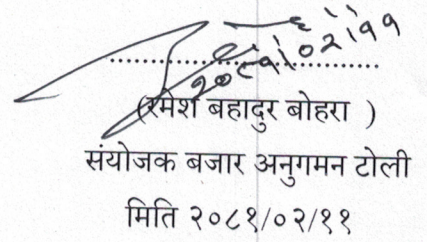 २०८१।०२।११
(रमेश बहादुर बोहरा )
संयोजक बजार अनुगमन टोली
मिति २०८१/०२/११